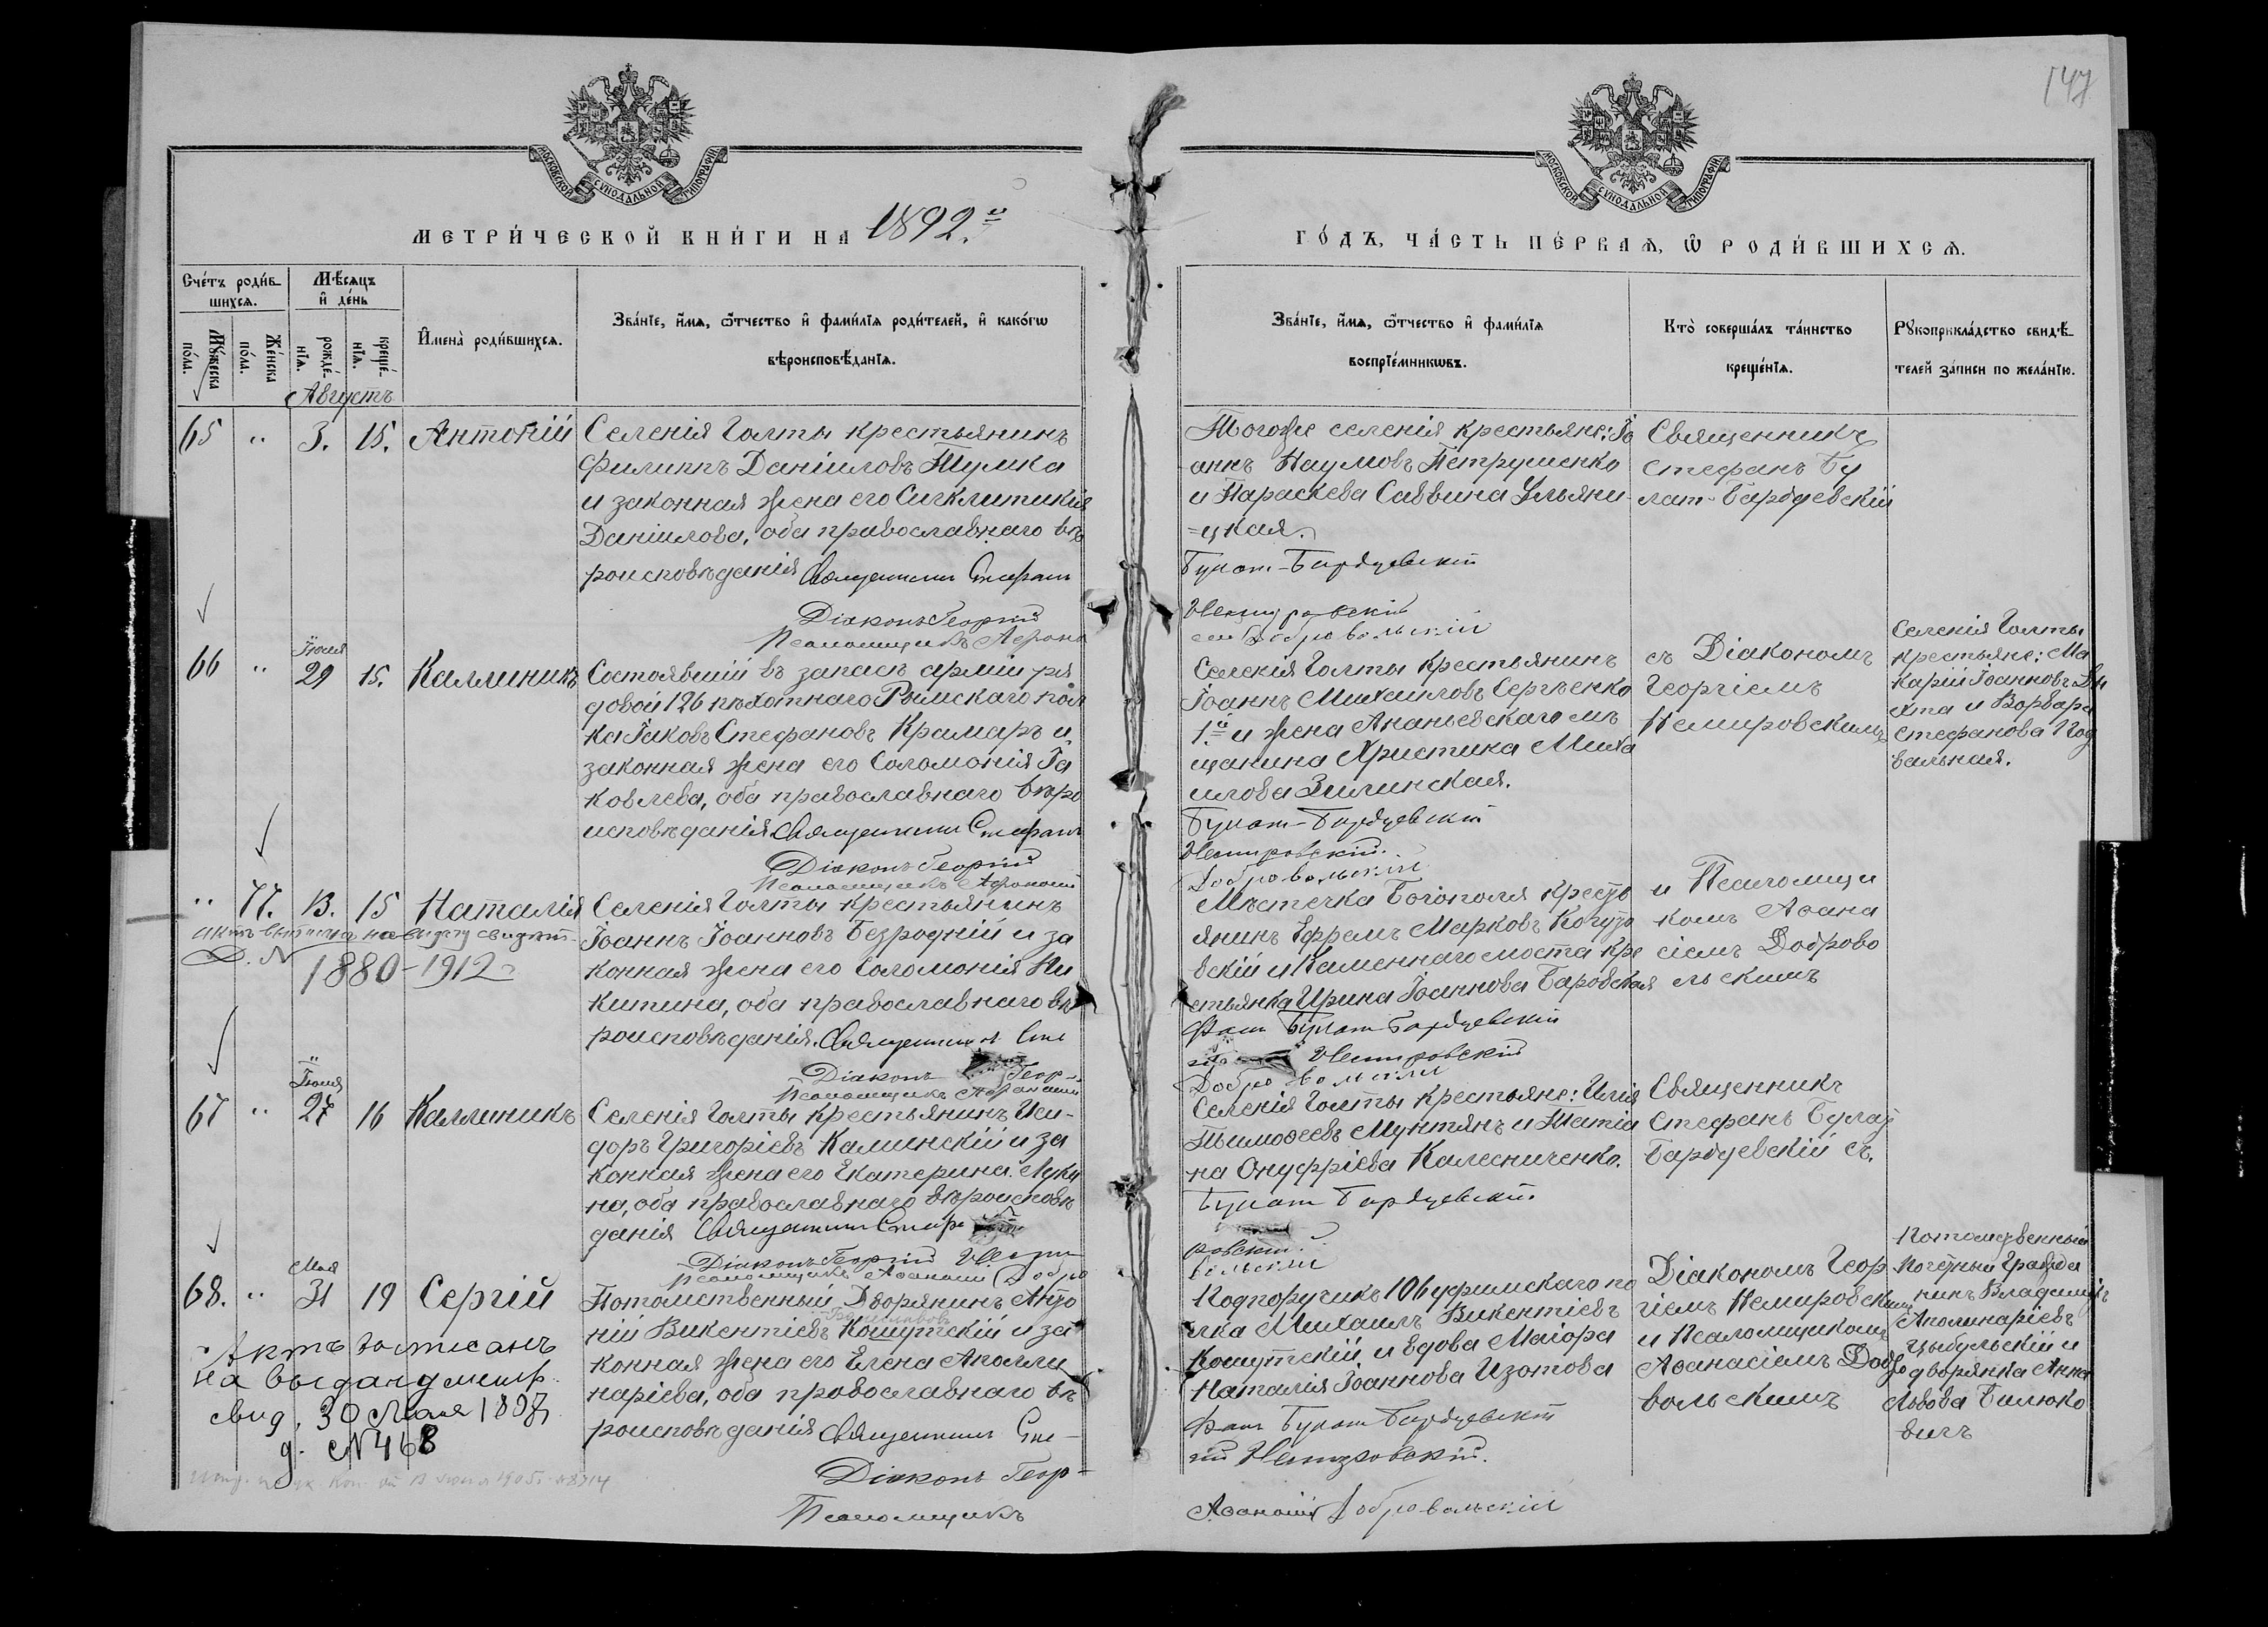 147
МОСКОВСКОЙ СѴНОДАЛЬНОЙ ТИПОГРАФІИ
МОСКОВСКОЙ СѴНОДАЛЬНОЙ ТИПОГРАФІИ
МЕТРИ́ЧЕСКОЙ КНИ́ГИ НА 1892.й
ГО́ДЪ, ЧА́СТЬ ПЕ́РВАЯ, Ѡ РОДИ́ВШИХСЯ.
Сче́тъ роди́в-
шихся.
Мѣ́сяцъ
и де́нь
Мꙋ́жеска
по́ла.
Же́нска
по́ла.
рожде́-
нїя.
креще́-
нїя.
И҆мена̀ роди́вшихся.
Зва́нїе, и҆́мя, ѻ҆́тчество и҆ фами́лїя роди́телей, и҆ како́гѡ
вѣроисповѣ́данїя.
Зва́нїе, и҆́мя, ѻ҆́тчество и҆ фами́лїя
воспрїе́мникѡвъ.
Кто̀ соверша́лъ та́инство
креще́нїя.
Рꙋкоприкла́дство свидѣ́-
телей за́писи по жела́нїю.
Августъ
65 " 3. 15. Антоній
Селенія Голты крестьянинъ
Филиппъ Даніиловъ Тумка
и законная жена его Сигклитикія
Даніилова, оба православнаго вѣ
роисповѣданія Священникъ Стефанъ
Діаконъ Георгій
Псаломщикъ Афана
Тогоже селенія крестьяне: Іо
аннъ Наумовъ Петрушенко
и Параскева Саввина Ульяни-
=цкая.
Булат-Бардуевскій
Немировскій
сій Добровольскій
Священникъ
Стефанъ Бу
лат-Бардуевскій
66 " Іюля 29 15. Каллиникъ
Состоявшій въ запасѣ арміи ря
довой 126 пѣхотнаго Рымскаго пол
ка Іаковъ Стефановъ Крамаръ и
законная жена его Соломонія Іа
ковлева, оба православнаго вѣро
исповѣданія Священникъ Стефанъ
Діаконъ Георгій
Псаломщикъ Афанасій
Селенія Голты крестьянинъ
Іоаннъ Михаиловъ Сергѣенко
1.й и жена Ананьевскаго мѣ
щанина Христина Миха
илова Зилинская.
Булат-Бардуевскій
Немировскій.
Добровольскій
съ Діакономъ
Георгіемъ
Немировскимъ
Селенія Голты
крестьяне: Ма
карій Іоанновъ
и Варвара
Стефанова Под
вальная.
" 77. 13. 15 Наталія
Селенія Голты крестьянинъ
Іоаннъ Іоанновъ Безродній и за
конная жена его Соломонія Ни
китина, оба православнаго вѣ
роисповѣданія. Священникъ Сте
Діаконъ Геор-
Псаломщикъ Афанасій
Актъ выписанъ на выдачу свидѣт.
1880-1912
Мѣстечка Богополя кресть
янинъ Ефремъ Марковъ
и Каменнагомоста кре
стьянка Ирина Іоаннова Баровская
фанъ Булат-Бардуевскій
Немировскій
Добровольскій
и Псаломщи
комъ Аѳана
сіемъ Доброво
льскимъ
67 " Іюля 27 16 Каллиникъ
Селенія Голты крестьянинъ Иси-
доръ Григоріевъ Калинскій и за
конная жена его Екатерина Луки
на, оба православнаго вѣроисповѣ
данія Священникъ Стеф
Діаконъ Георгій Неми
Псаломщикъ Аѳанасій Добро
Селенія Голты крестьяне: Илія
Тимоѳеевъ Мунтянъ и Татіа
на Онуфріева Калесниченко.
Булат Бардуевскій
ровскій.
вольскій
Священникъ
Стефанъ Булат
Бардуевскій съ.
68. " Мая 31 19 Сергій
Потомственный Дворянинъ Анто
ній Викентіевъ Кошутскій и за
конная жена его Елена Аполли
наріева, оба православнаго вѣ
роисповѣданія Священникъ Сте-
Діаконъ Геор-
Псаломщикъ
Актъ выписанъ
на выдачу метр.
свид. 30 Мая
д. №468
Подпоручикъ 106 уфимскаго по
лка Михаилъ Викентіевъ
Кошутскій и вдова Маіора
Наталія Іоаннова Изотова
фанъ Булат Бардуевскій
гій Немировскій.
Аѳанасій Добровольскій
Діакономъ Геор
гіемъ Немировскимъ
и Псаломщикомъ
Аѳанасіемъ Добро
вольскимъ
Потомственный
почетный гражда
нинъ Владиміръ
Аполинаріевъ
Цыбульскій и
дворянка Анна
Львова Билюко
вичъ